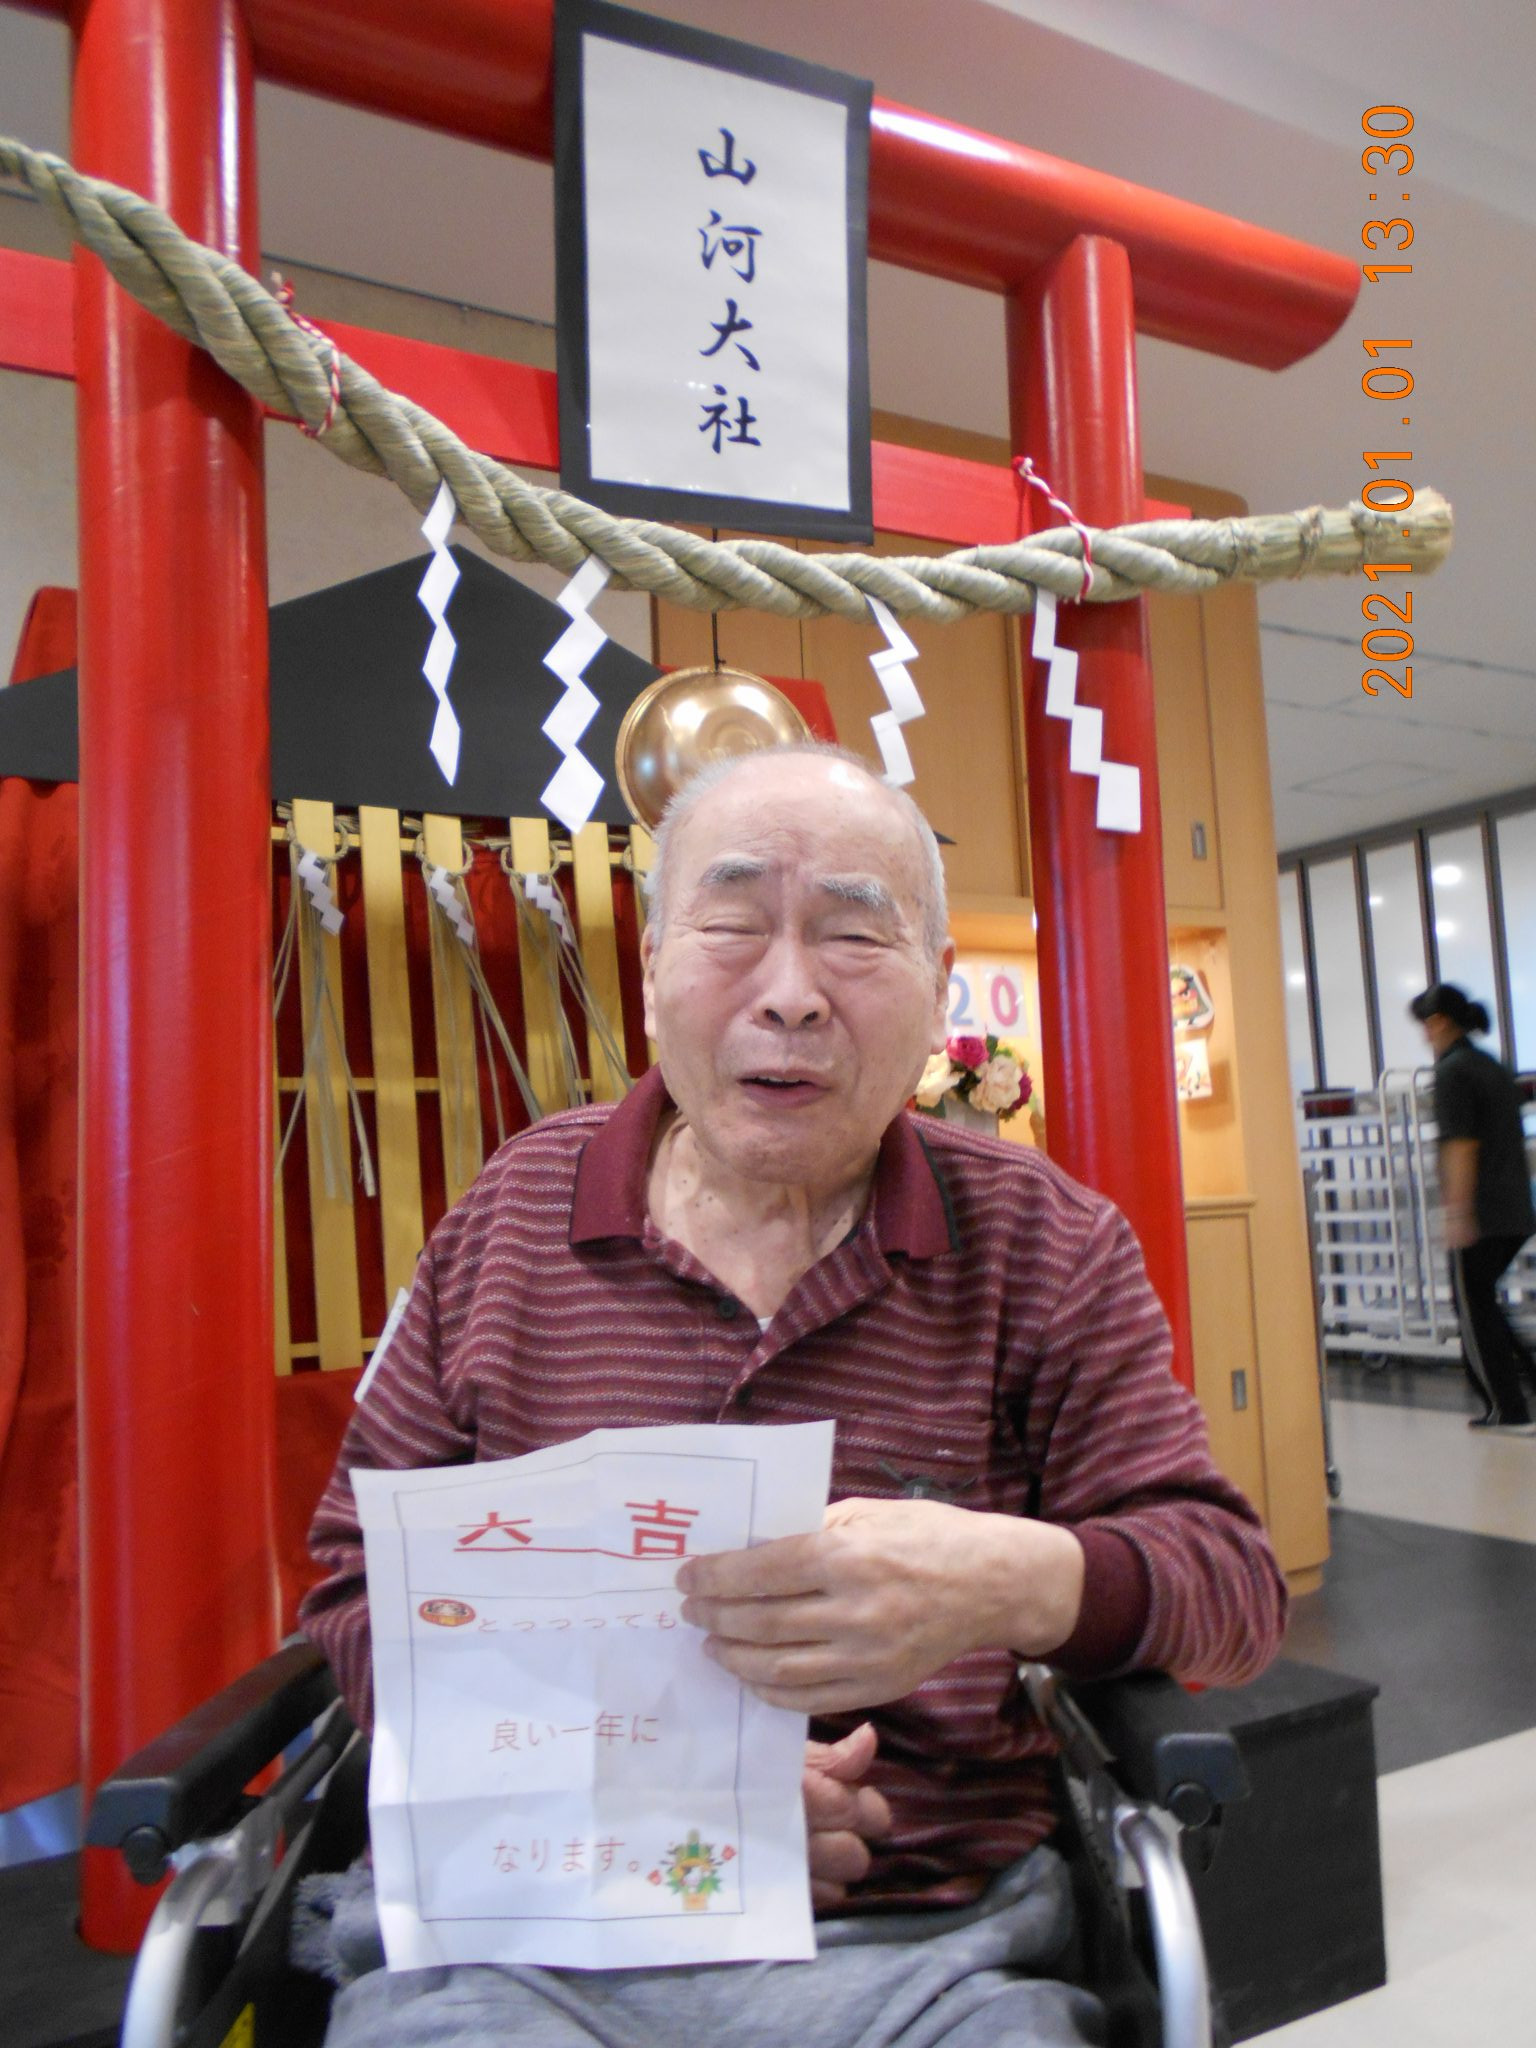 山河大社
2021.01.01 13:30
20
六 吉
とっつっても
良い一年に
なります。